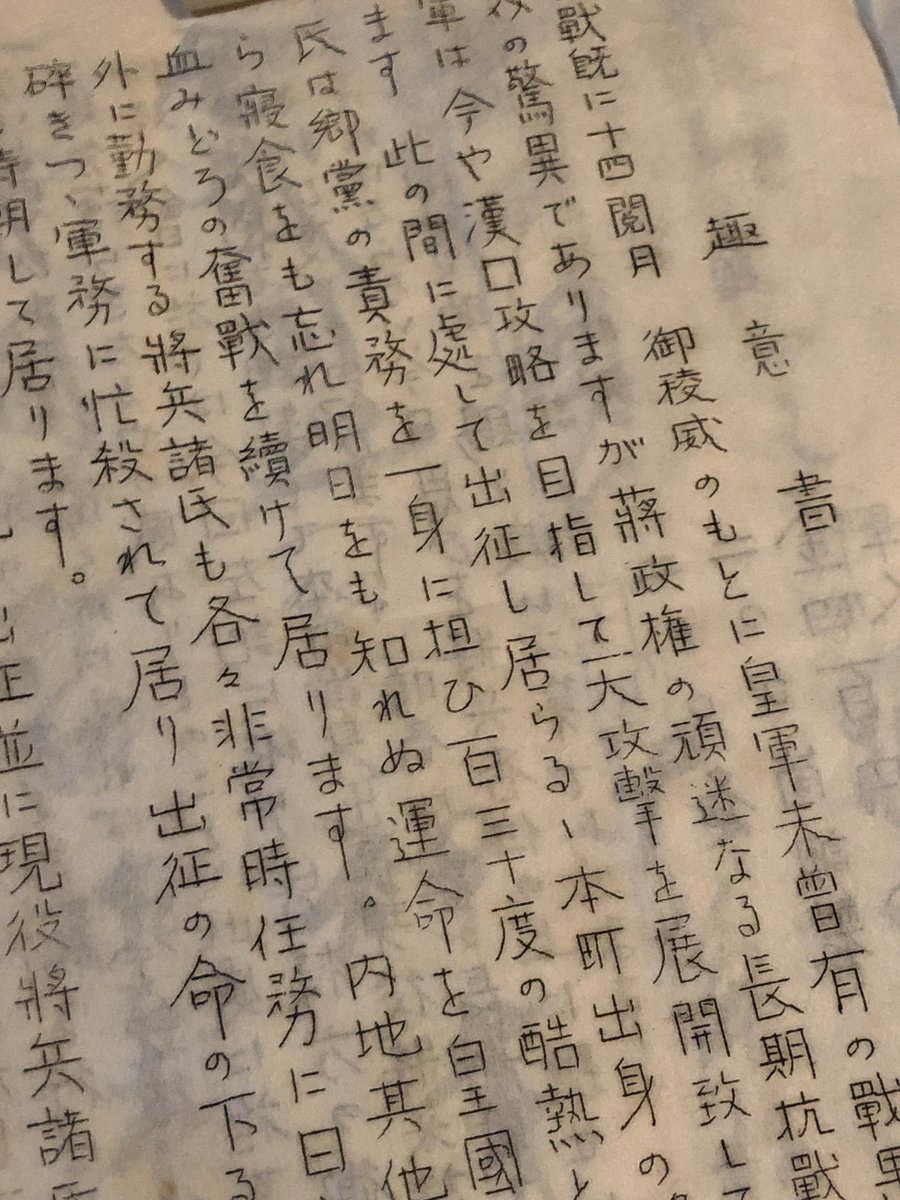 趣意書
戰旣に十四閲月 御稜威のもとに皇軍未曾有の戰
の驚異でありますが蔣政権の頑迷なる長期抗戰
軍は今や漢口攻略を目指して一大攻撃を展開致して
ます 此の間に處して出征し居らるゝ本町出身の
氏は郷黨の責務を一身に担ひ百三十度の酷熱と
ら寢食をも忘れ明日をも知れぬ運命を皇國
血みどろの奮戰を續けて居ります。内地其他
外に勤務する將兵諸氏も各々非常時任務に日
碎きつゝ軍務に忙殺されて居り出征の命の下る
して居ります。
征並に現役將兵諸氏